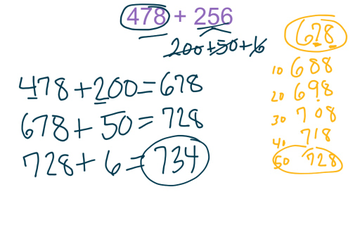 478 + 256
200+50+6
478+200=678
678+ 50=728
728+ 6=734
678
10 688
20 698
30 708
40 718
50 728